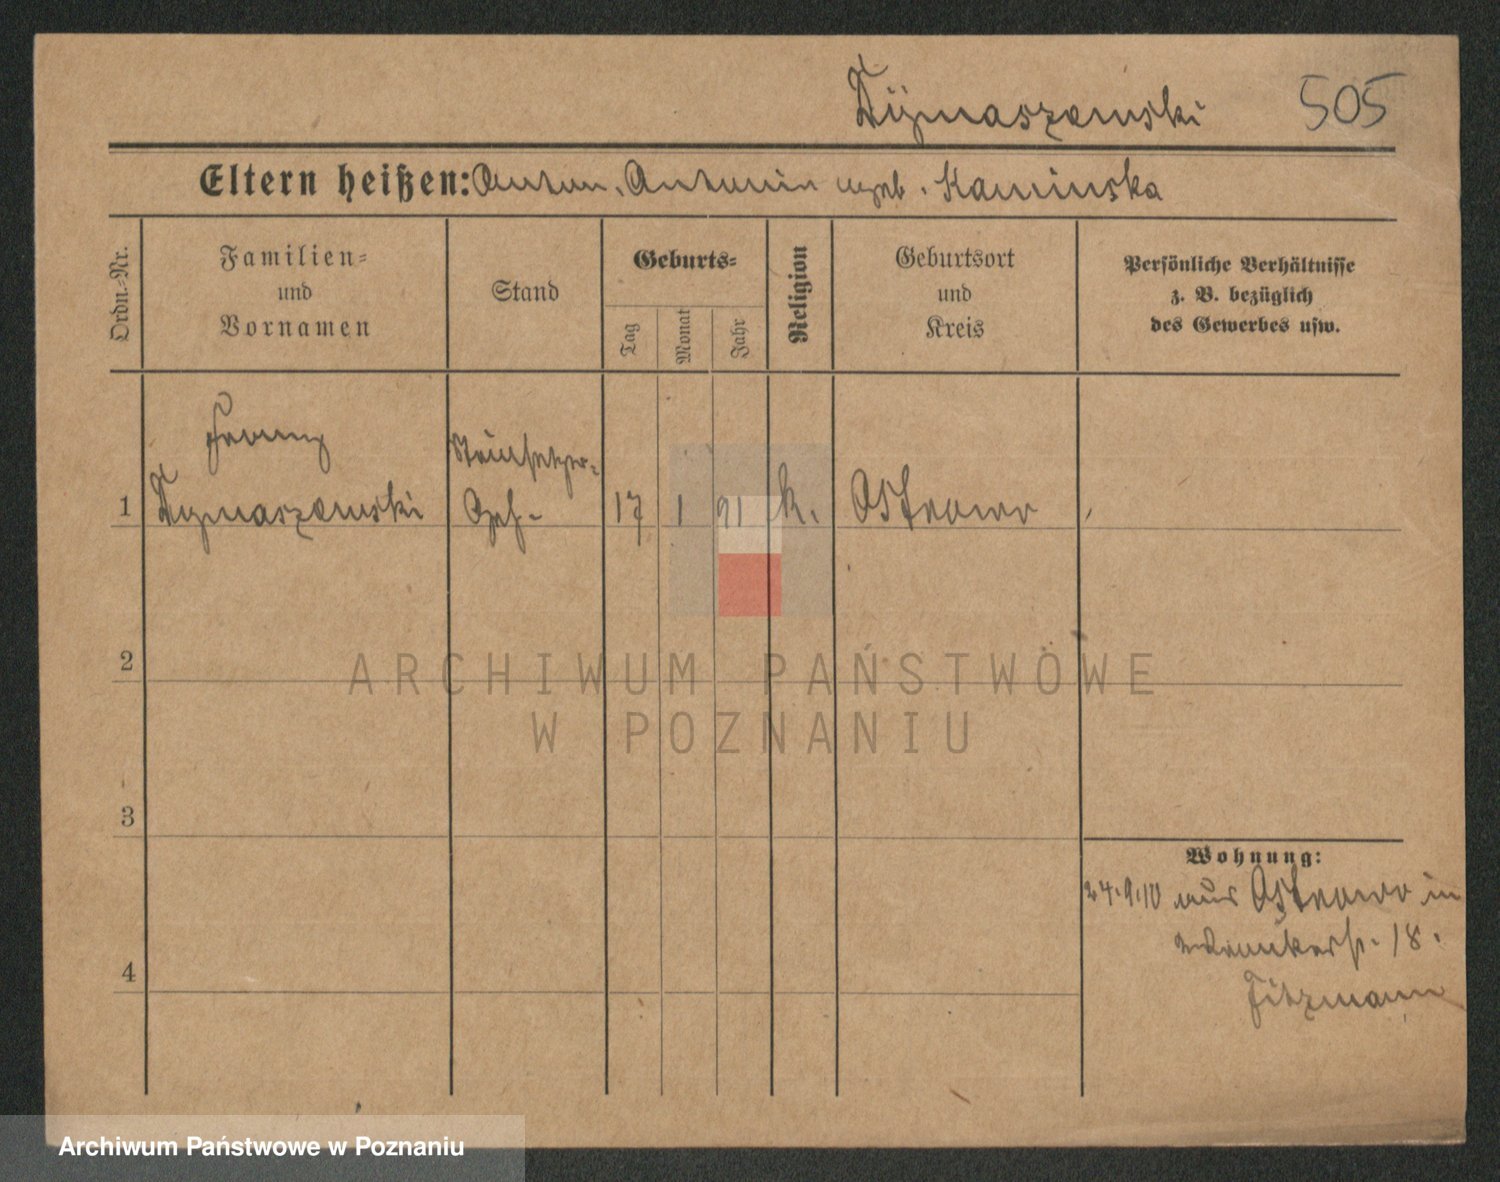 Dymaszewski 505
Eltern heißen: Anton, Antonin geb. Kaminska
Ordn.-Nr.
Familien-
und
Vornamen
Stand
Geburts-
Tag
Monat
Jahr
Religion
Geburtsort
und
Kreis
Persönliche Verhältnisse
z. B. bezüglich
des Gewerbes usw.
Franz Steinsetzer-
1 Dymaszewski Geh- 17 1 91 k. Ostrowo
2
3
4
Wohnung:
24.9.10 aus Ostrowo in
18.
Fitzmann
ARCHIWUM PAŃSTWOWE
W POZNANIU
Archiwum Państwowe w Poznaniu